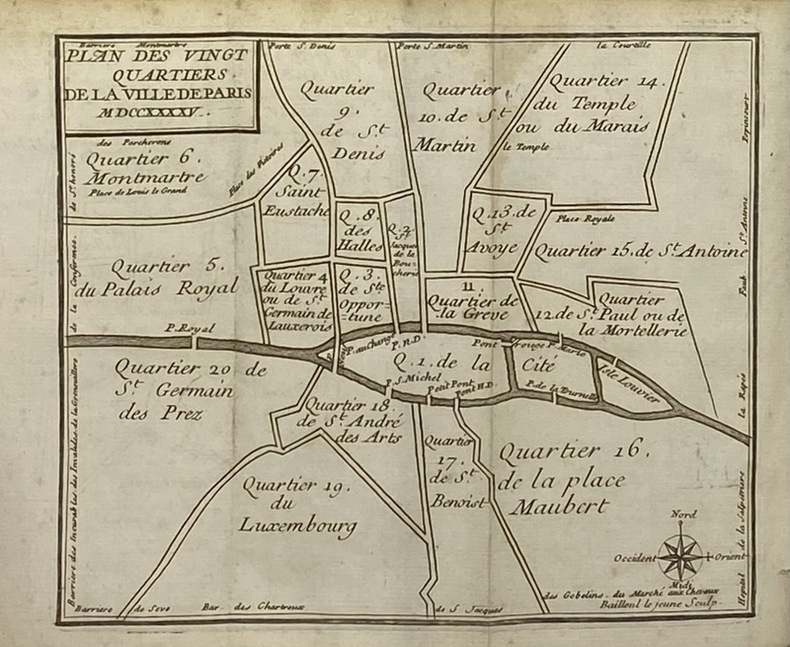 Barriere Montmartre
PLAN DES VINGT
QUARTIERS
DE LA VILLE DE PARIS
MDCCXXXXV.
Porte S. Denis
Porte S. Martin
la Courtille
Quartier
9.
de S.t
Denis
Quartier
10. de S.t
Martin
Quartier 14.
du Temple
ou du Marais
le Temple
Popincourt
des Porcherons
Quartier 6.
Montmartre
Place de Louis le Grand
Place des Victoires
de St. honoré
Q. 7.
Saint
Eustache
Q. 8.
des
Halles
Q. 2.
St.
Jacques
de la
Bou=
cherie
Q. 13. de
S.t
Avoye
Place Royale
Quartier 15. de St Antoine
Faub St. Antoine
Quartier 5.
du Palais Royal
de la Conference.
Quartier 4
du Louvre
ou de S.t
Germain de
Lauxerois
Q. 3.
de Ste
Oppor=
tune
11.
Quartier de
la Greve
Quartier
12. de S.t Paul ou de
la Mortellerie
P. Royal
P. Neuf
P. au Change
P. N. D.
Q. 1. de la
Cité
Pont rouge
P. Marie
Isle Louvier
P. S. Michel
Petit Pont
Pont H. D.
P. de la Tournelle
la Rapée
Quartier 20 de
S.t Germain
des Prez
Quartier 18.
de S.t André
des Arts
Quartier
17.
de S.t
Benoist
Quartier 16.
de la place
Maubert
Quartier 19.
du
Luxembourg
Barriere des Incurables des Invalides de la Grenouillere
Hopital de la Salpetriere
Nord
Occident
Orient
Midi
Barriere de Seve
Bar. des Chartreux
de S. Jacques
des Gobelins. du Marché aux Chevaux
Bailleul le jeune Sculp.